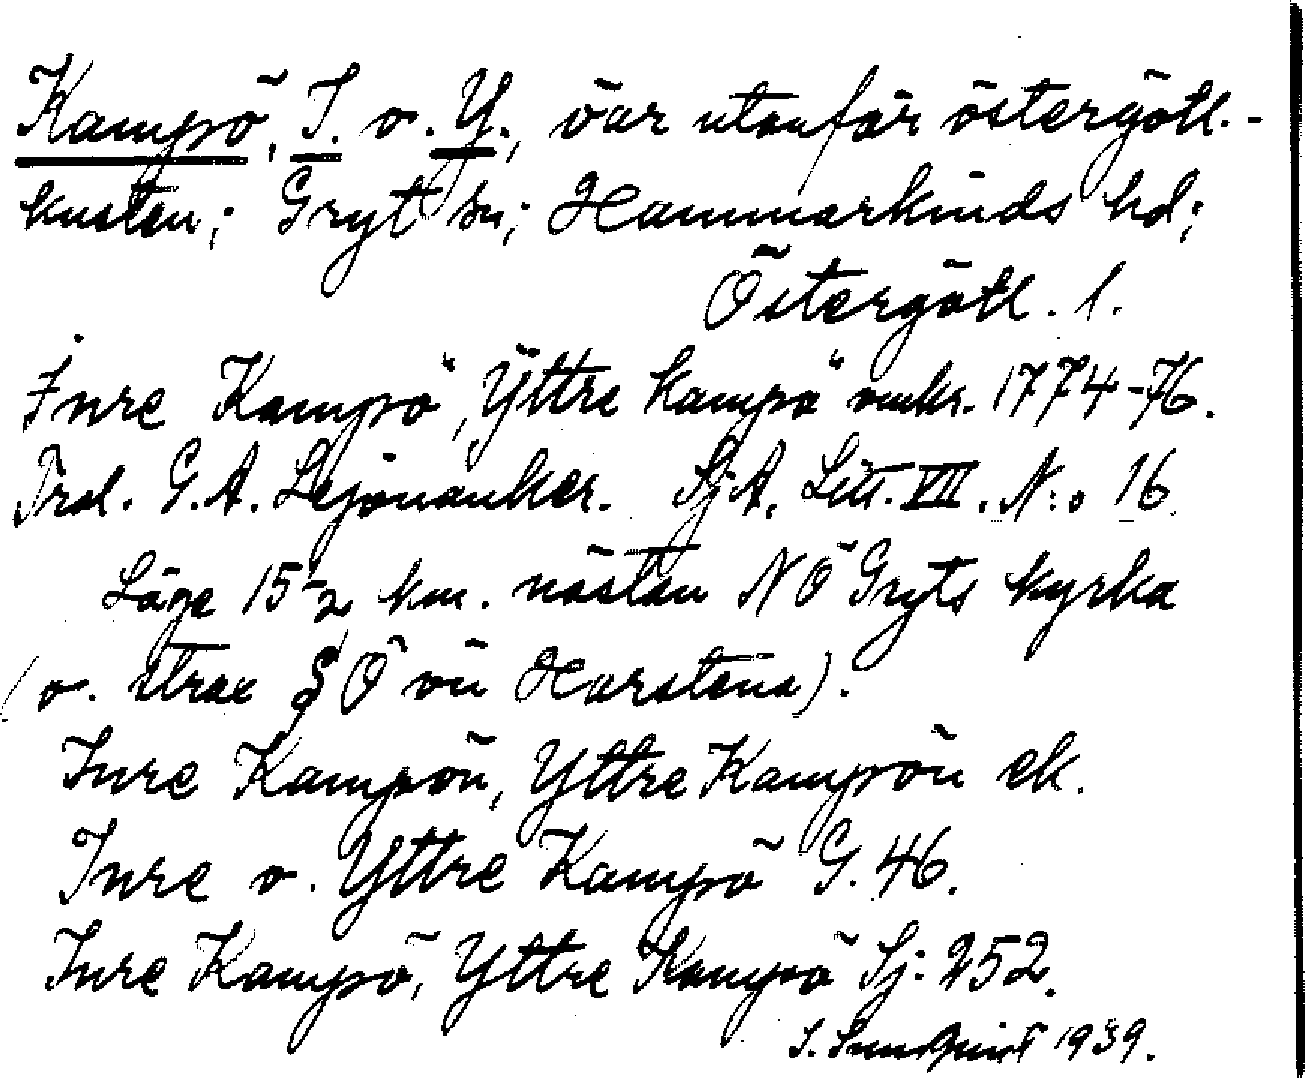 Kampö, I. o. Y., öar utanför östergötl.-
kusten; Gryt sn; Hammarkinds hd;
Östergötl. l.
Inre Kampö", Yttre Kampö" omkr. 1774-76.
Äral. G. A. Lejonanker. SjA, Litt. VIII. N:o 16
Läge 15 1/2 km. nästan NÖ Gryts kyrka
(o. strax SÖ om Harstena).
Inre Kampön, Yttre Kampön ek.
Inre o. Yttre Kampö G. 46.
Inre Kampö, Yttre Kampö Sj: 252.
I. Sundquist 1939.